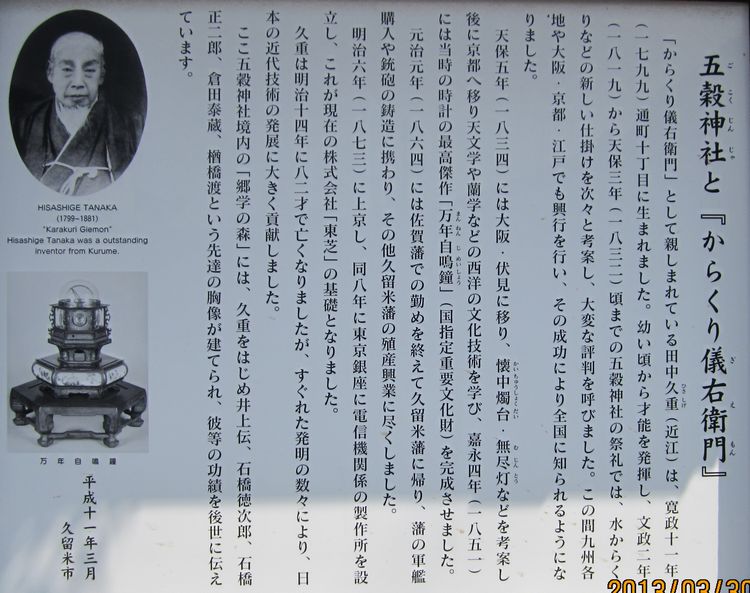 五穀神社と『からくり儀右衛門』
ごこくじんじゃ
ぎえもん
「からくり儀右衛門」として親しまれている田中久重（近江）は、寛政十一年
ひさしげ
（一七九九）通町十丁目に生まれました。幼い頃から才能を発揮し、文政二年
（一八一九）から天保三年（一八三二）頃までの五穀神社の祭礼では、水からく
りなどの新しい仕掛けを次々と考案し、大変な評判を呼びました。この間九州各
地や大阪・京都・江戸でも興行を行い、その成功により全国に知られるようにな
りました。
天保五年（一八三四）には大阪・伏見に移り、懐中燭台・無尽灯などを考案し
かいちゅうしょくだい
むじんとう
後に京都へ移り天文学や蘭学などの西洋の文化技術を学び、嘉永四年（一八五一）
には当時の時計の最高傑作「万年自鳴鐘」（国指定重要文化財）を完成させました。
まんねんじめいしょう
元治元年（一八六四）には佐賀藩での勤めを終えて久留米藩に帰り、藩の軍艦
購入や銃砲の鋳造に携わり、その他久留米藩の殖産興業に尽くしました。
明治六年（一八七三）に上京し、同八年に東京銀座に電信機関係の製作所を設
立し、これが現在の株式会社「東芝」の基礎となりました。
久重は明治十四年に八二才で亡くなりましたが、すぐれた発明の数々により、日
本の近代技術の発展に大きく貢献しました。
ここ五穀神社境内の「郷学の森」には、久重をはじめ井上伝、石橋徳次郎、石橋
正二郎、倉田泰蔵、楢橋渡という先達の胸像が建てられ、彼等の功績を後世に伝え
ています。
HISASHIGE TANAKA
(1799–1881)
"Karakuri Giemon"
Hisashige Tanaka was a outstanding
inventor from Kurume.
万年自鳴鐘
平成十一年三月
久留米市
2013/03/30